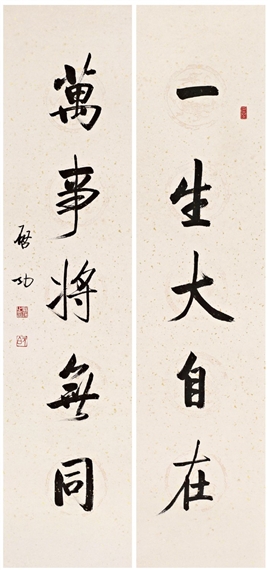 一生大自在
萬事將無同
啟功